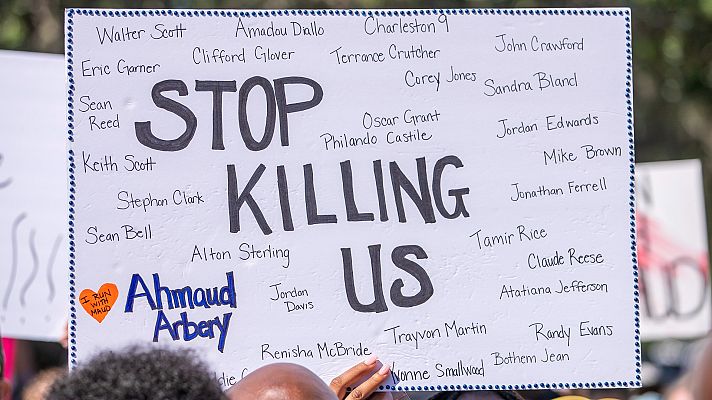 Walter Scott
Amadou Diallo
Charleston 9
John Crawford
Eric Garner
Clifford Glover
Terrance Crutcher
Corey Jones
Sandra Bland
Sean
Reed
STOP
Oscar Grant
Philando Castile
Jordan Edwards
Keith Scott
Mike Brown
KILLING
Stephon Clark
Jonathan Ferrell
Sean Bell
Alton Sterling
US
Tamir Rice
Claude Reese
I RUN
WITH
MAUD
Ahmaud
Arbery
Jordan
Davis
Atatiana Jefferson
Trayvon Martin
Randy Evans
Renisha McBride
Bothem Jean
Yvonne Smallwood